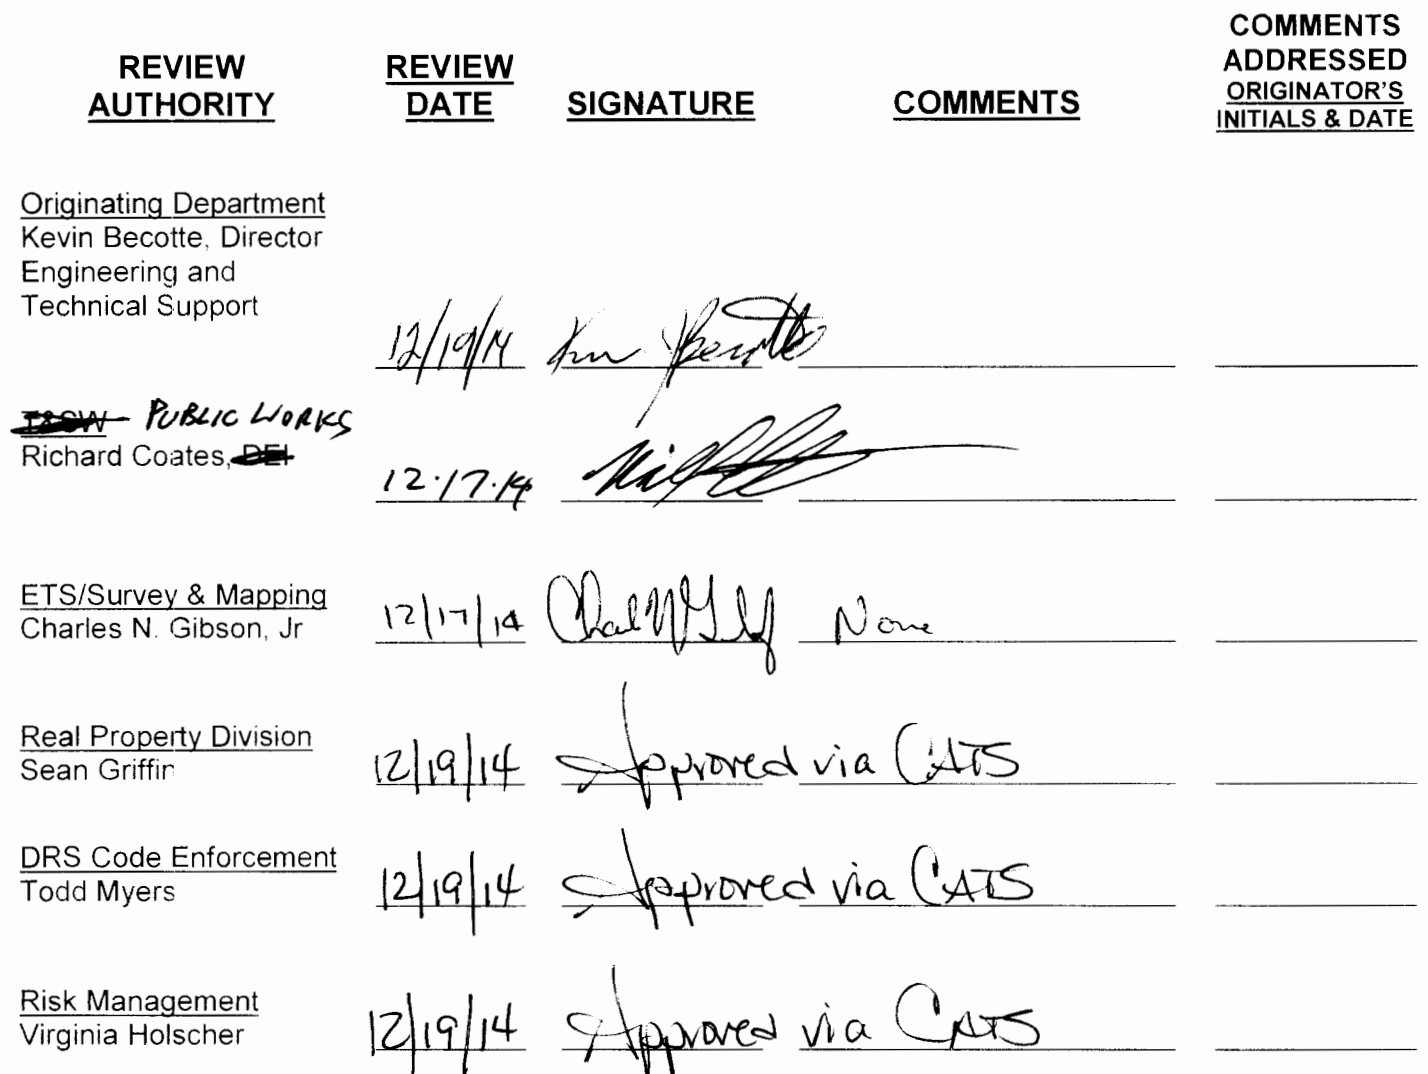 REVIEW AUTHORITY
REVIEW DATE
SIGNATURE
COMMENTS
COMMENTS ADDRESSED ORIGINATOR'S INITIALS & DATE
Originating Department
Kevin Becotte, Director
Engineering and
Technical Support
12/19/14
T&SW PUBLIC WORKS
Richard Coates, DEI
12.17.14
ETS/Survey & Mapping
Charles N. Gibson, Jr
12/17/14 None
Real Property Division
Sean Griffin
12/19/14 Approved via CATS
DRS Code Enforcement
Todd Myers
12/19/14 Approved via CATS
Risk Management
Virginia Holscher
12/19/14 Approved via CATS